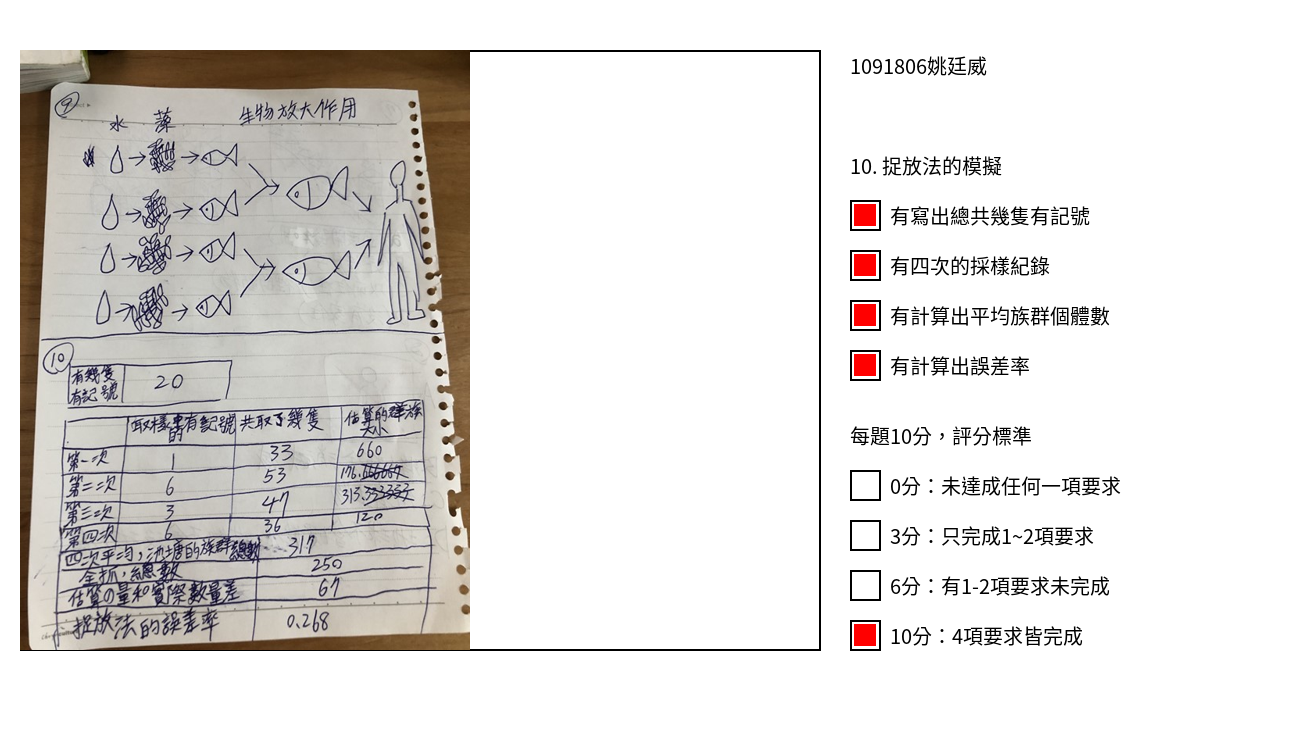 9
生物放大作用
水 藻
10
有幾隻有記號 20
取樣中有記號的 共取了幾隻 估算的群族大小
第一次 1 33 660
第二次 6 53 176.
第三次 3 47 313.
第四次 6 36 120
四次平均,池塘的族群總數 317
全抓,總數 250
估算の量和實際數量差 67
捉放法的誤差率 0.268
1091806姚廷威
10. 捉放法的模擬
有寫出總共幾隻有記號
有四次的採樣紀錄
有計算出平均族群個體數
有計算出誤差率
每題10分，評分標準
0分：未達成任何一項要求
3分：只完成1~2項要求
6分：有1-2項要求未完成
10分：4項要求皆完成